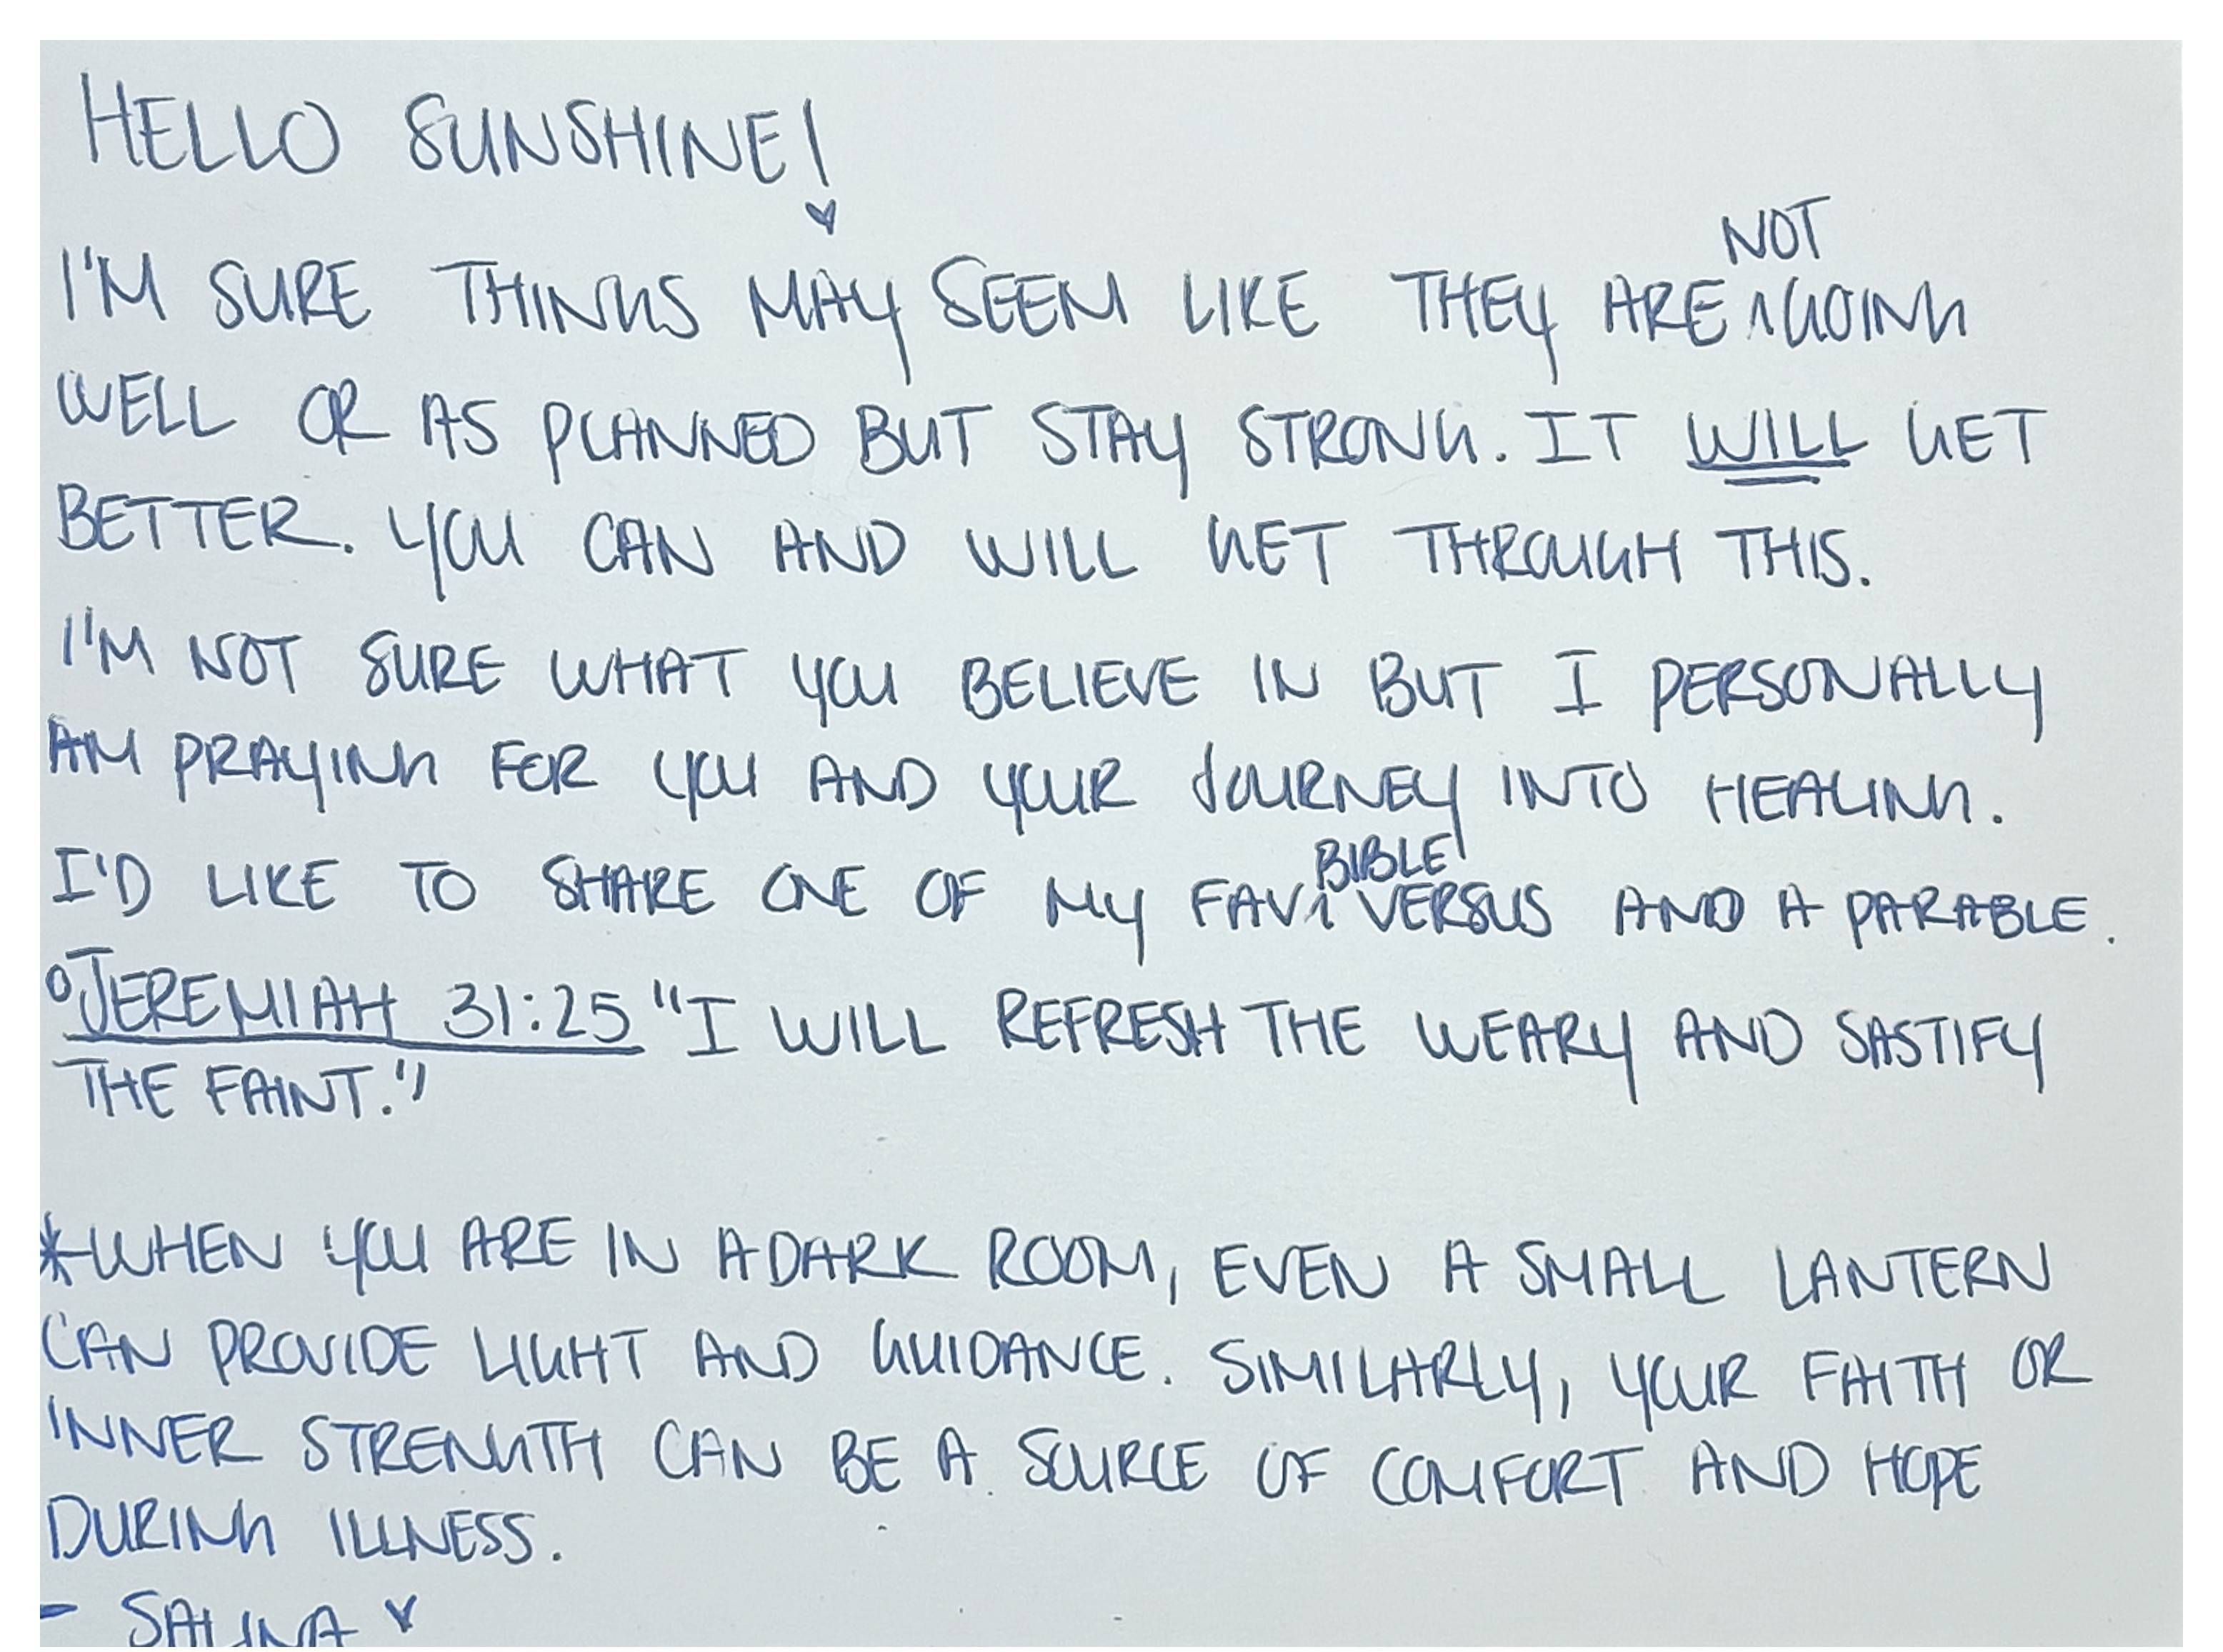 HELLO SUNSHINE!
I'M SURE THINGS MAY SEEM LIKE THEY ARE NOT GOING
WELL OR AS PLANNED BUT STAY STRONG. IT WILL GET
BETTER. YOU CAN AND WILL GET THROUGH THIS.
I'M NOT SURE WHAT YOU BELIEVE IN BUT I PERSONALLY
AM PRAYING FOR YOU AND YOUR JOURNEY INTO HEALING.
I'D LIKE TO SHARE ONE OF MY FAV BIBLE VERSUS AND A PARABLE.
°JEREMIAH 31:25 "I WILL REFRESH THE WEARY AND SASTIFY
THE FAINT."
*WHEN YOU ARE IN A DARK ROOM, EVEN A SMALL LANTERN
CAN PROVIDE LIGHT AND GUIDANCE. SIMILARLY, YOUR FAITH OR
INNER STRENGTH CAN BE A SOURCE OF COMFORT AND HOPE
DURING ILLNESS.
- SALINA